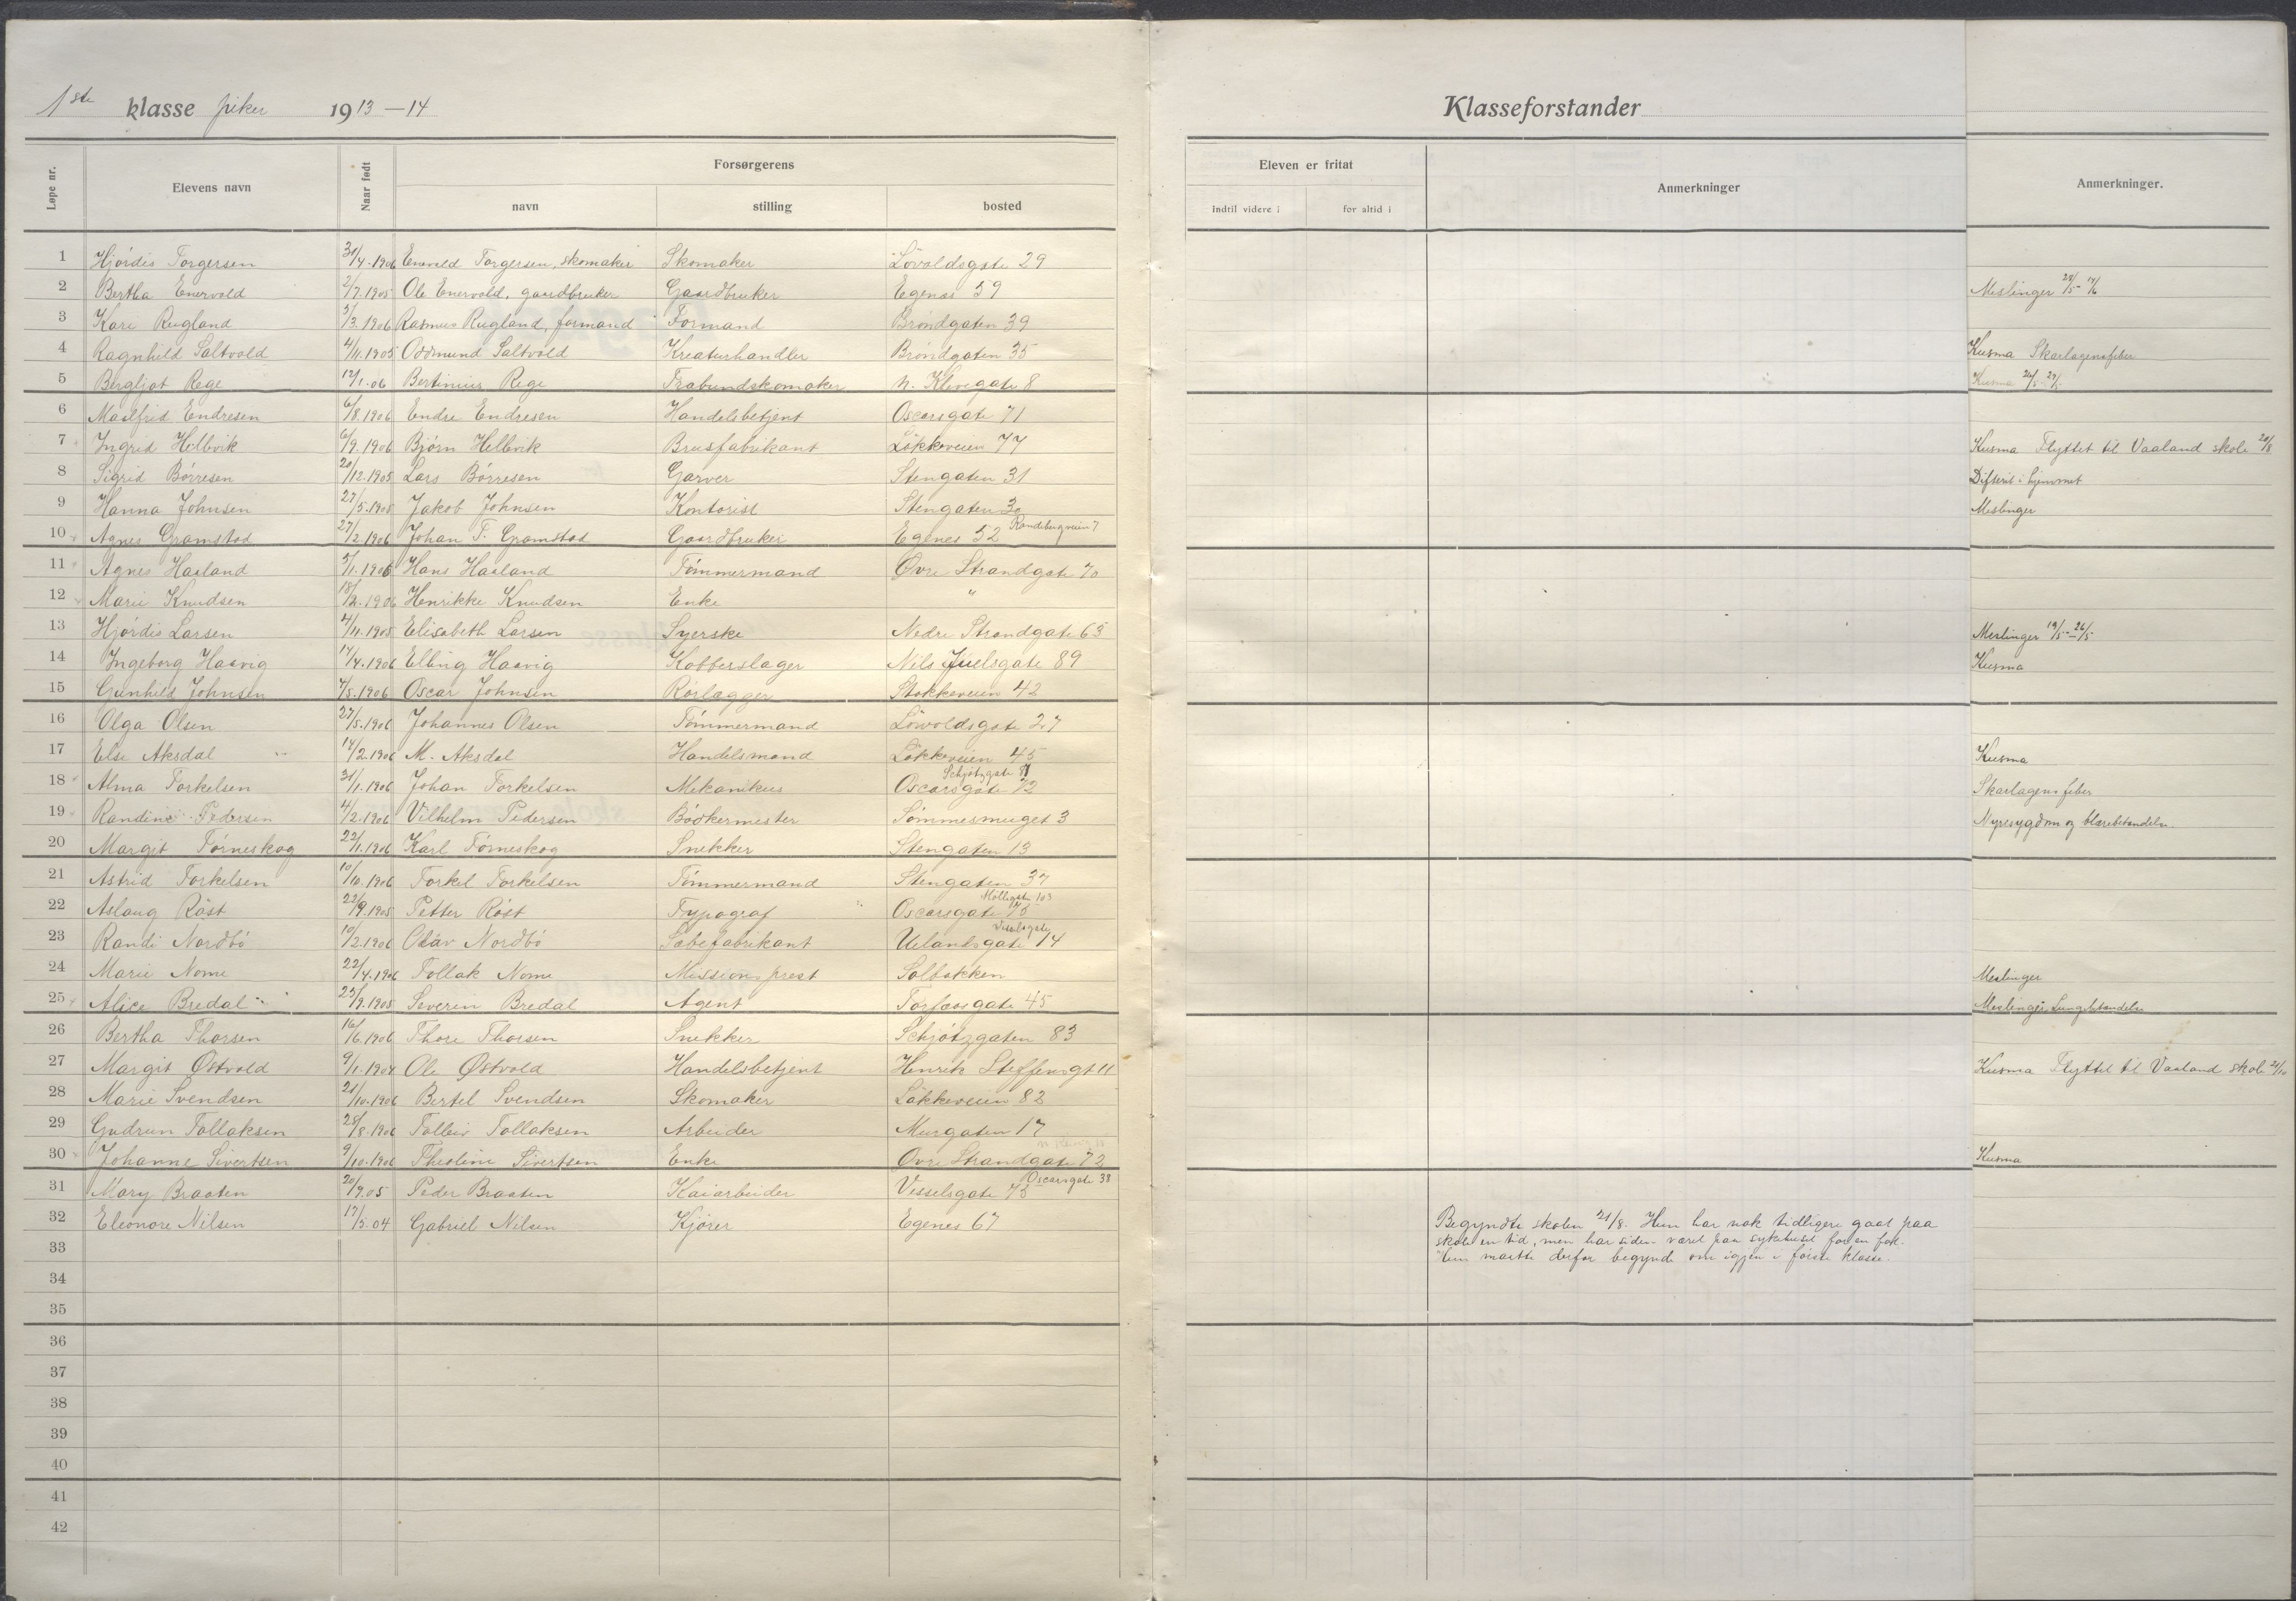 1ste klasse piker 1913–14
Klasseforstander
Løpe nr. Elevens navn Naar født Forsørgerens navn stilling bosted Eleven er fritat indtil videre i for altid i Anmerkninger Anmerkninger.
1 Hjördis Torgersen 30/4.1906 Torgersen, skomaker Skomaker Lövoldsgate 29
2 Bertha Enervold 2/7.1905 Ole Enervold, gaardbruker Gaardbruker Egenes 59 Meslinger 28/5 - 14/6
3 Kari Rugland 3/3.1906 Rasmus Rugland, formand Formand Bröndgaten 39
4 Ragnhild Saltvold 4/11.1905 Oddmund Saltvold Kreaturhandler Bröndgaten 35 Kusma Skarlagensfeber
5 Bergljot Rege 12/1.06 Bertinius Rege Træbundskomaker n. Klevegate 8 Kusma 26/5 - 29/5
6 Maalfrid Endresen 6/8.1906 Endre Endresen Handelsbetjent Oscarsgate 71
7 Ingrid Hellvik 6/9.1906 Bjørn Hellvik Brusfabrikant Lökkeveien 77 Kusma Flyttet til Vaaland skole 20/8
8 Sigrid Börresen 20/12.1905 Lars Börresen Garver Stengaten 31 Difterit i hjemmet
9 Hanna Johnsen 27/5.1905 Jakob Johnsen Kontorist Stengaten 30 Meslinger
10 Agnes Gramstad 27/2.1906 Johan T. Gramstad Gaardbruker Egenes 52 Randebergveien 7
11 Agnes Haaland 5/1.1906 Hans Haaland Tömmermand Øvre Strandgate 70
12 Marie Knudsen 18/12.1906 Henrikke Knudsen Enke "
13 Hjördis Larsen 4/11.1905 Elisabeth Larsen Syerske Nedre Strandgate 65 Meslinger 19/5 - 26/5
14 Ingeborg Haavig 17/4.1906 Elling Haavig Kobberslager Nils Juelsgate 89 Kusma
15 Gunhild Johnsen 7/5.1906 Oscar Johnsen Rörlægger Stokkeveien 42
16 Olga Olsen 27/5.1906 Johannes Olsen Tömmermand Lövoldsgate 27
17 Else Aksdal 14/2.1906 M. Aksdal Handelsmand Lökkeveien 45 Kusma
Schjötzgate 81
18 Alma Torkelsen 31/1.1906 Johan Torkelsen Mekanikus Oscarsgate 72 Skarlagensfeber
19 Randine Pedersen 4/2.1906 Vilhelm Pedersen Bödkermester Sömmesmuget 3 Nyresygdom og blærebetændelse
20 Margit Törneskog 22/1.1906 Karl Törneskog Snekker Stengaten 13
21 Astrid Torkelsen 10/10.1906 Torkel Torkelsen Tömmermand Stengaten 37
22 Aslaug Röst 22/9.1905 Petter Röst Typograf Oscarsgate 75
23 Randi Nordbö 10/2.1906 Olav Nordbö Sæbefabrikant Uelandsgate 14
24 Marie Nome 22/4.1906 Tollak Nome Missionsprest Solbakken Meslinger
25 Alice Bredal 23/9.1905 Severin Bredal Agent Torfæusgate 45 Meslinger Lungebetændelse
26 Bertha Thorsen 16/6.1906 Thore Thorsen Snekker Schjötzgaten 83
27 Margit Østvold 9/1.1904 Ole Østvold Handelsbetjent Henrik Steffensgt 11 Kusma Flyttet til Vaaland skole 21/10
28 Marie Svendsen 21/10.1906 Bertel Svendsen Skomaker Lökkeveien 82
29 Gudrun Tollaksen 28/8.1906 Tolleiv Tollaksen Arbeider Murgaten 17
30 Johanne Sivertsen 9/10.1906 Theoline Sivertsen Enke Øvre Strandgate 72 Kusma
Oscarsgate 38
31 Mary Braaten 20/9.05 Peder Braaten Kaiarbeider Vesselsgate 75
32 Eleonore Nilsen 17/5.04 Gabriel Nilsen Kjörer Egenes 67 Begyndte skolen 21/8. Hun har nok tidligere gaat paa
skole en tid, men har siden været paa sykehuset for en fot.
33 Hun maatte derfor begynde om igjen i förste klasse.
34
35
36
37
38
39
40
41
42